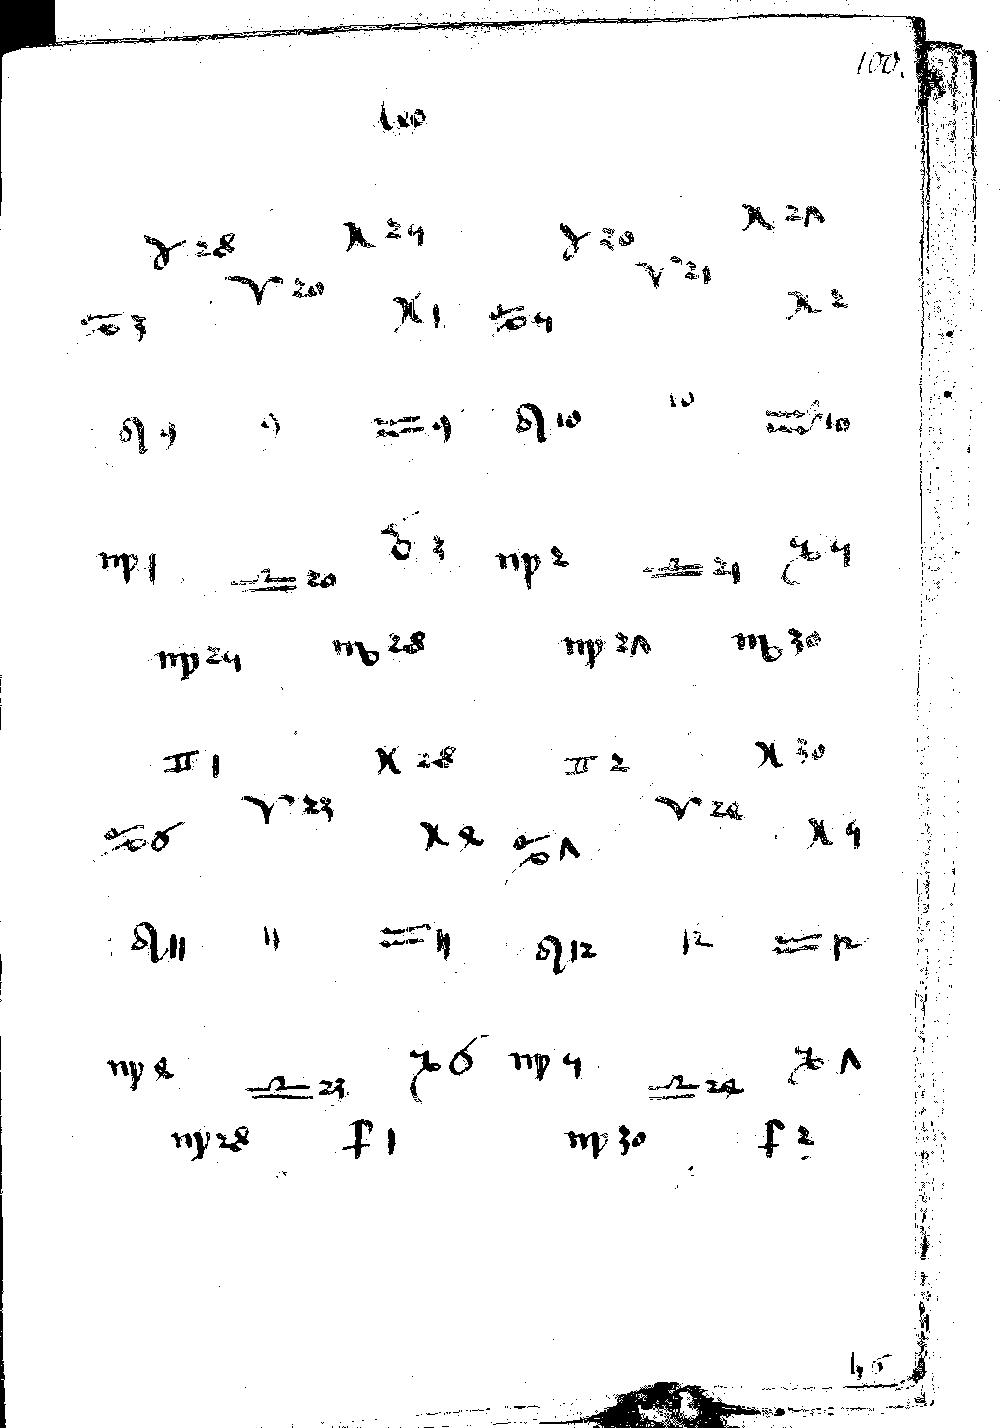 100.
100
♉ 28 ♓ 25 ♉ 30 ♓ 27
♈ 20 ♈ 21
♋ 3 ♓ 1 ♋ 5 ♓ 2
♌ 9 9 ♒ 9 ♌ 10 10 ♒ 10
♍ 1 ♎ 20 ♑ 3 ♍ 2 ♎ 21 ♑ 5
♍ 25 ♏ 28 ♍ 27 ♏ 30
♊ 1 ♓ 28 ♊ 2 ♓ 30
♈ 23 ♈ 24
♋ 6 ♓ 4 ♋ 7 ♓ 5
♌ 11 11 ♒ 11 ♌ 12 12 ♒ 12
♍ 4 ♎ 23 ♑ 6 ♍ 5 ♎ 24 ♑ 7
♍ 28 ♐ 1 ♍ 30 ♐ 2